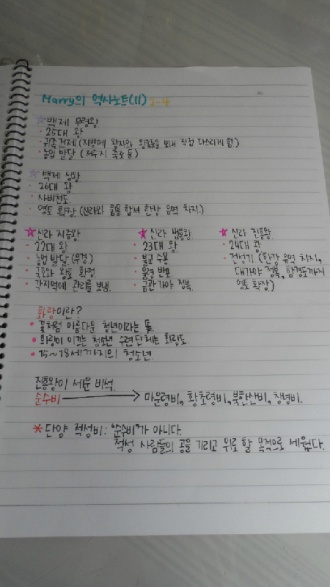 Harry의 역사노트(11) 2-4
☆백제 무령왕
· 25대 왕
· 귀족견제 (지방에 왕자와 왕족을 보내 직접 다스리게 함)
· 농업 발달 (저수지 축조 등)
☆백제 성왕
· 26대 왕
· 사비천도
· 영토 확장 (신라와 힘을 합쳐 한강 유역 차지)
★신라 지증왕 ★신라 법흥왕 ★신라 진흥왕
· 22대 왕 · 23대 왕 · 24대 왕
· 농업 발달 (우경) · 불교 수용 · 전성기 (한강 유역 차지,
· 국호와 왕호 확정 · 율령 반포 대가야 정복, 함경도까지
· 각지역에 관리를 보냄 · 금관가야 정복 영토 확장)
화랑이란?
• 꽃처럼 아름다운 청년이라는 뜻
• 화랑이 이끄는 청소년 수련단체는 화랑도
• 15~18세까지의 청소년
진흥왕이 세운 비석
순수비 → 마운령비, 황초령비, 북한산비, 창녕비.
* 단양 적성비: "순수비"가 아니다.
적성 사람들의 공을 기리고 위로 할 목적으로 세웠다.